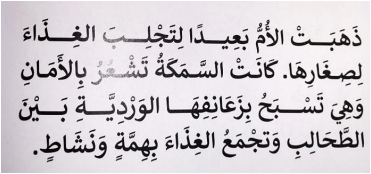 ذَهَبَتْ الأُمُّ بَعِيدًا لِتَجْلِبَ الغِذَاءَ
لِصِغَارِهَا. كَانَتْ السَّمَكَةُ تَشْعُرُ بِالأَمَانِ
وَهِيَ تَسْبَحُ بِزَعَانِفِهَا الوَرْدِيَّةِ بَيْنَ
الطَّحَالِبِ وَتَجْمَعُ الغِذَاءَ بِهِمَّةٍ وَنَشَاطٍ.